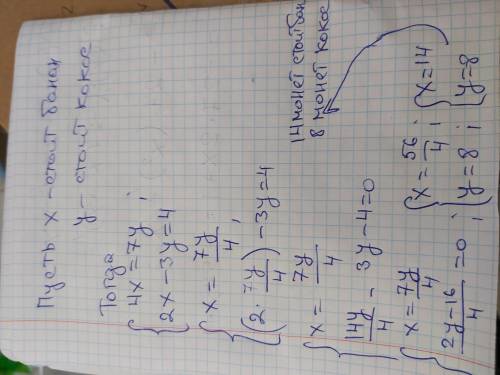 Пусть x - стоит банан
y - стоит кокос
Тогда
{ 4x = 7y ;
2x - 3y = 4
{ x = 7y/4 ;
(2 · 7y/4) - 3y = 4
{ x = 7y/4
14y/4 - 3y - 4 = 0
{ x = 7y/4
2y - 16/4 = 0 ;
{ x = 56/4 ;
y = 8 ;
{ x = 14
y = 8
14 монет стоит бан
8 монет кокос